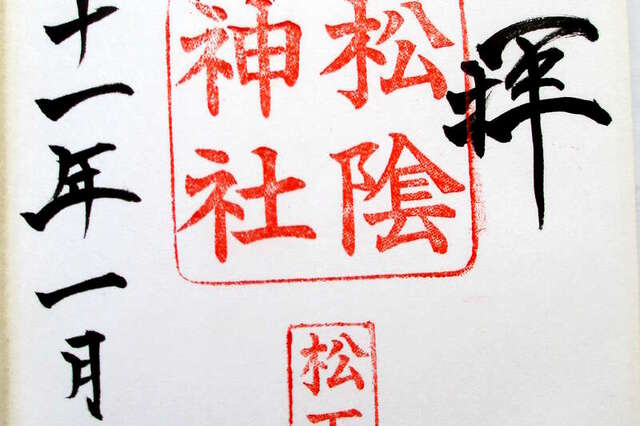 拝
松陰
神社
松下
十一年一月